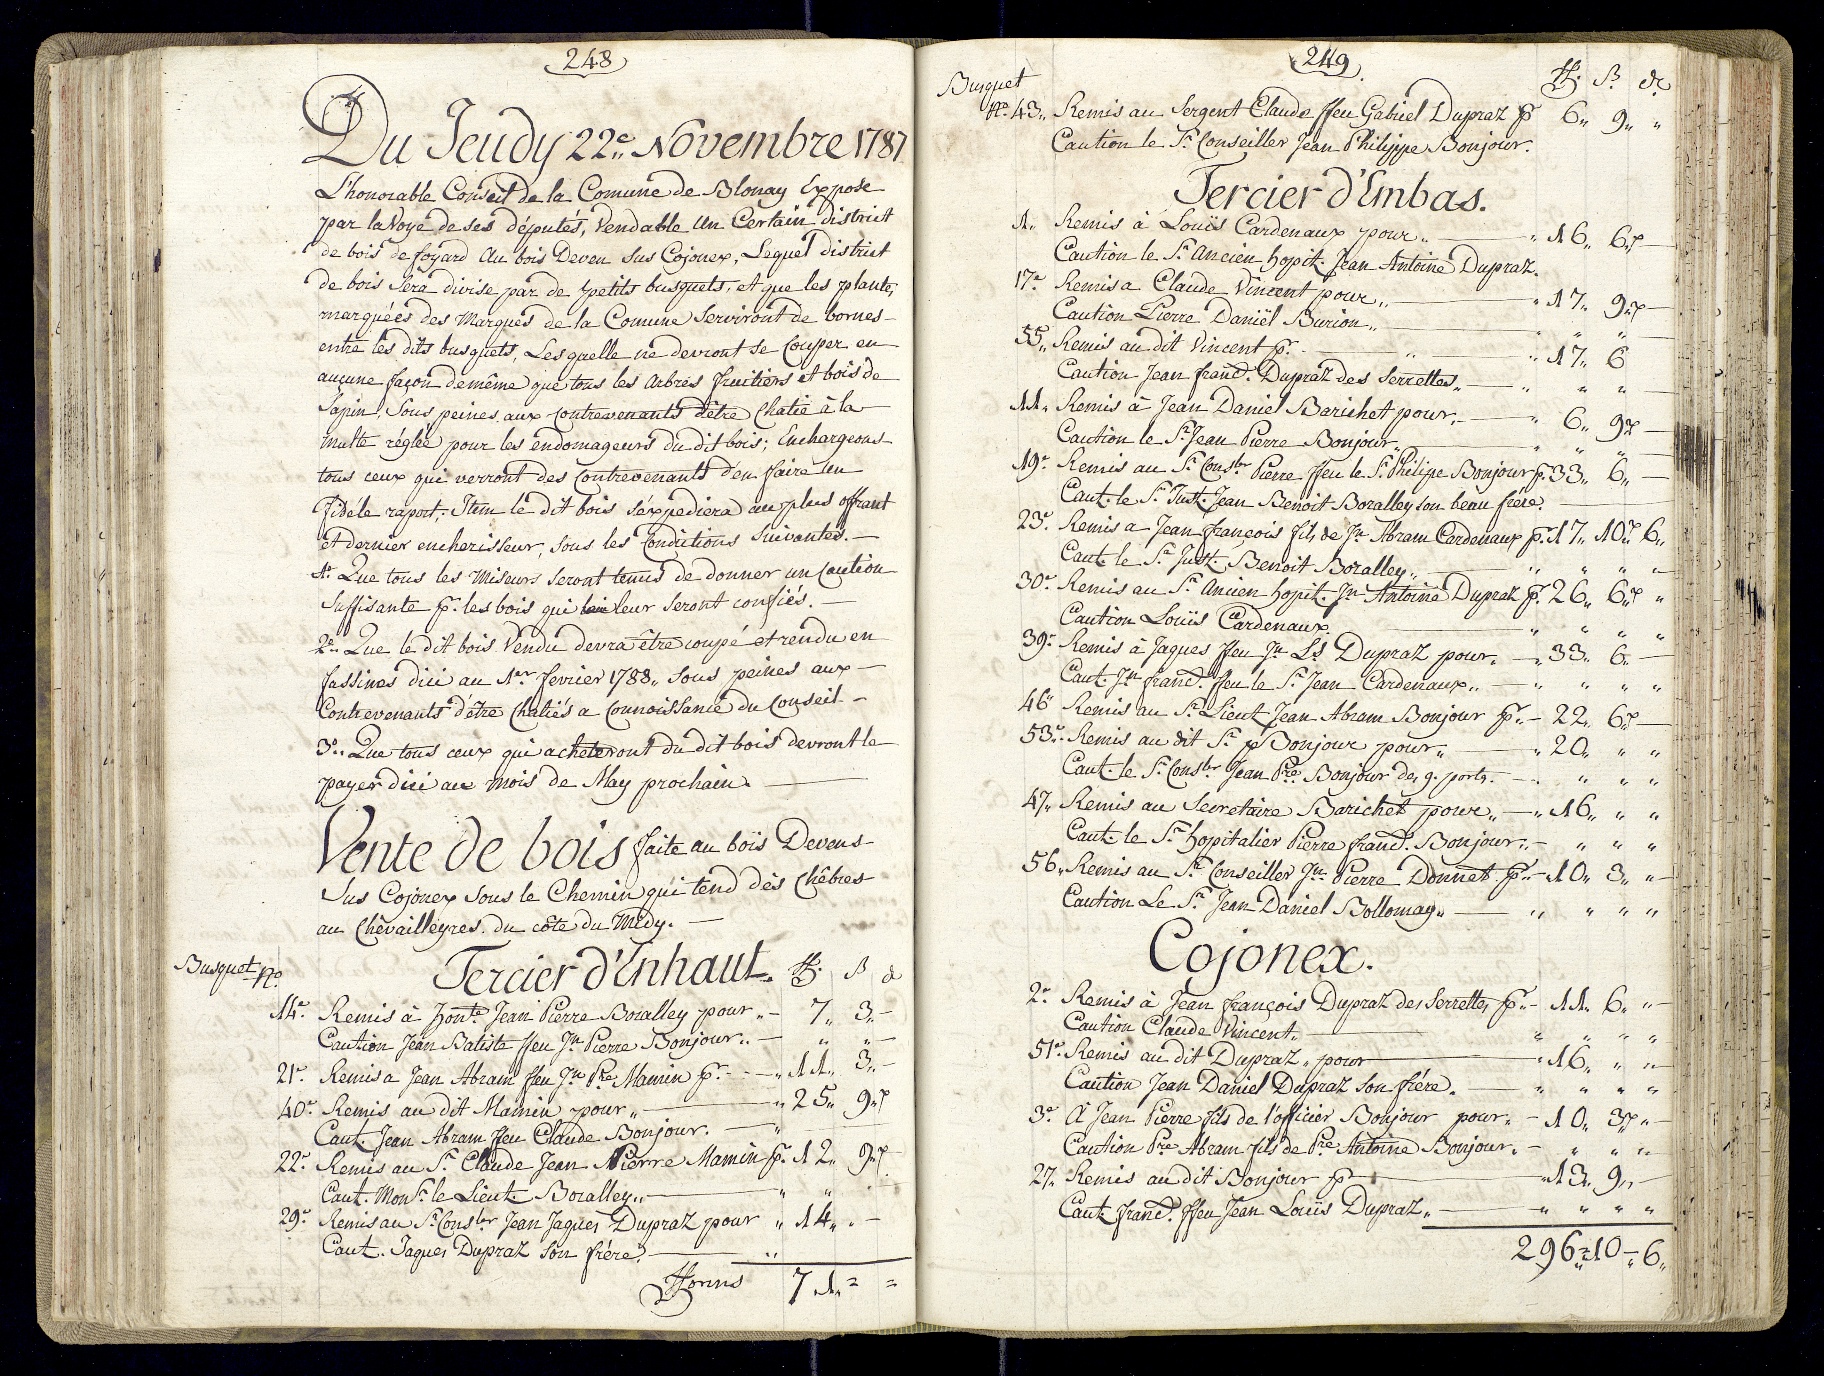 248
Du Jeudy 22e. Novembre 1787
L'honorable Conseil de la Comune de Blonay Expose
par la Voye de ses députés, Vendable Un Certain district
de bois de foyard Au bois Deven sus Cojonex, Lequel district
de bois sera divisé par de petits busquets, et que les plantes
marquéés des Marques de la Comune Serviront de bornes
entre les dits busquets, Lesquelle ne devront se Couper en
aucune façon demême que tous les arbres fruitiers et bois de
Sapin, Sous peines aux Contrevenants d'être Chatié à la
multe réglée pour les endomageurs du dit bois; Enchargeons
tous ceux qui verront des Contrevenants d'en faire un
Fidéle raport, Item le dit bois s'éxpediera au plus offrant
et dernier encherisseur, sous les Conditions Suivantes.
1o. Que tous les Miseurs seront tenus de donner un Caution
Suffisante pr. les bois qui leur seront confiés.
2o. Que le dit bois Vendu devra être coupé et rendu en
fassines dici au 1er fevrier 1788, sous peines aux
Contrevenants d'être Chatiés a Connoissance du Conseil
3o. Que tous ceux qui acheteront du dit bois devront le
payer dici au mois de May prochain.
Vente de bois faite au bois Devens
Sus Cojonex sous le Chemin qui tend dès Chêbres
au Chevailleyres du côte du Midy.
Busquet No. Tercier d'Enhaut. ff. ß d
14e. Remis à Hon.te Jean Pierre Boralley pour 7,, 3,,
Caution Jean Batiste ffeu Jn. Pierre Bonjour. ,, ,,
21e. Remis a Jean Abram ffeu Jn. Pre. Mamin pr. ,, 11,, 3,,
40e. Remis au dit Mamin pour ,, ,, 25,, 9,,
Caut. Jean Abram ffeu Claude Bonjour. ,,
22e. Remis au Sr. Claude Jean Pierre Mamin pr. 12,, 9,,
Caut. Monsr. le Lieut. Boralley ,, ,, ,,
29e. Remis au Sr. Consler Jean Jaques Dupraz pour ,, 14,, ,,
Caut. Jaques Dupraz Son frére. ,,
71,, ,,
249.
Busquet ff. ß. d.
No. 43,, Remis au Sergent Claude ffeu Gabriel Dupraz pr 6,, 9,, ,,
Caution le Sr. Conseiller Jean Philippe Bonjour.
Tercier d'Embas.
1,, Remis à Louïs Cardenaux pour ,, ,, 16,, 6,,
Caution le Sr. Ancien hopit. Jean Antoine Dupraz.
17e. Remis a Claude Vincent pour ,, ,, 17,, 9,,
Caution Pierre Daniël Burion ,, ,, ,, ,,
55,, Remis au dit Vincent pr. ,, ,, 17,, 6
Caution Jean frand. Dupraz des Serrettes ,, ,, ,, ,,
11,, Remis à Jean Daniel Barichet pour ,, ,, 6,, 9
Caution le Sr. Jean Pierre Bonjour ,, ,, ,, ,,
19e. Remis au Sr. Consler Pierre ffeu le Sr. Philipe Bonjour pr. 33,, 6,,
Caut. le Sr. Just. Jean Benoit Boralley son beau frére.
23e. Remis a Jean françois fils de Jn. Abram Cardenaux pr. 17,, 10,, 6,,
Caut. le Sr. Just. Benoit Boralley ,, ,, ,, ,,
30e. Remis au Sr. Ancien hopit. Jn. Antoine Dupraz pr. 26,, 6,, ,,
Caution Louïs Cardenaux. ,, ,, ,, ,,
39e. Remis à Jaques ffeu Jn. Ls. Dupraz pour ,, 33,, 6,,
Caut. Jn. frand. ffeu le Sr. Jean Cardenaux ,, ,, ,, ,, ,,
46e Remis au Sr. Lieut. Jean Abram Bonjour pr. 22,, 6,,
53e. Remis au dit Sr. Bonjour pour ,, ,, 20,, ,, ,,
Caut. le Sr. Consler Jean Pre. Bonjour des 9. ports. ,, ,, ,,
47,, Remis au Secretaire Barichet pour ,, ,, 16,, ,, ,,
Caut. le Sr. hopitalier Pierre frand. Bonjour. ,, ,, ,,
56,, Remis au Sr. Conseiller Jn. Pierre Donnet pr. 10,, 3,, ,,
Caution Le Sr. Jean Daniel Bollomay ,, ,, ,, ,, ,,
Cojonex.
2e. Remis à Jean françois Dupraz des Serrettes pr. 11,, 6,, ,,
Caution Claude Vincent. ,, ,, ,, ,,
51e. Remis au dit Dupraz ,, pour ,, 16,, ,, ,,
Caution Jean Daniel Dupraz Son frére. ,, ,, ,, ,,
3e. À Jean Pierre fils de l'officier Bonjour pour ,, 10,, 3,, ,,
Caution Pre. Abram fils de Pre. Antoine Bonjour. ,, ,, ,,
27,, Remis au dit Bonjour pr ,, 13,, 9,,
Caut. frand. ffeu Jean Louïs Dupraz ,, ,, ,, ,, ,,
296,, 10 ,, 6,,